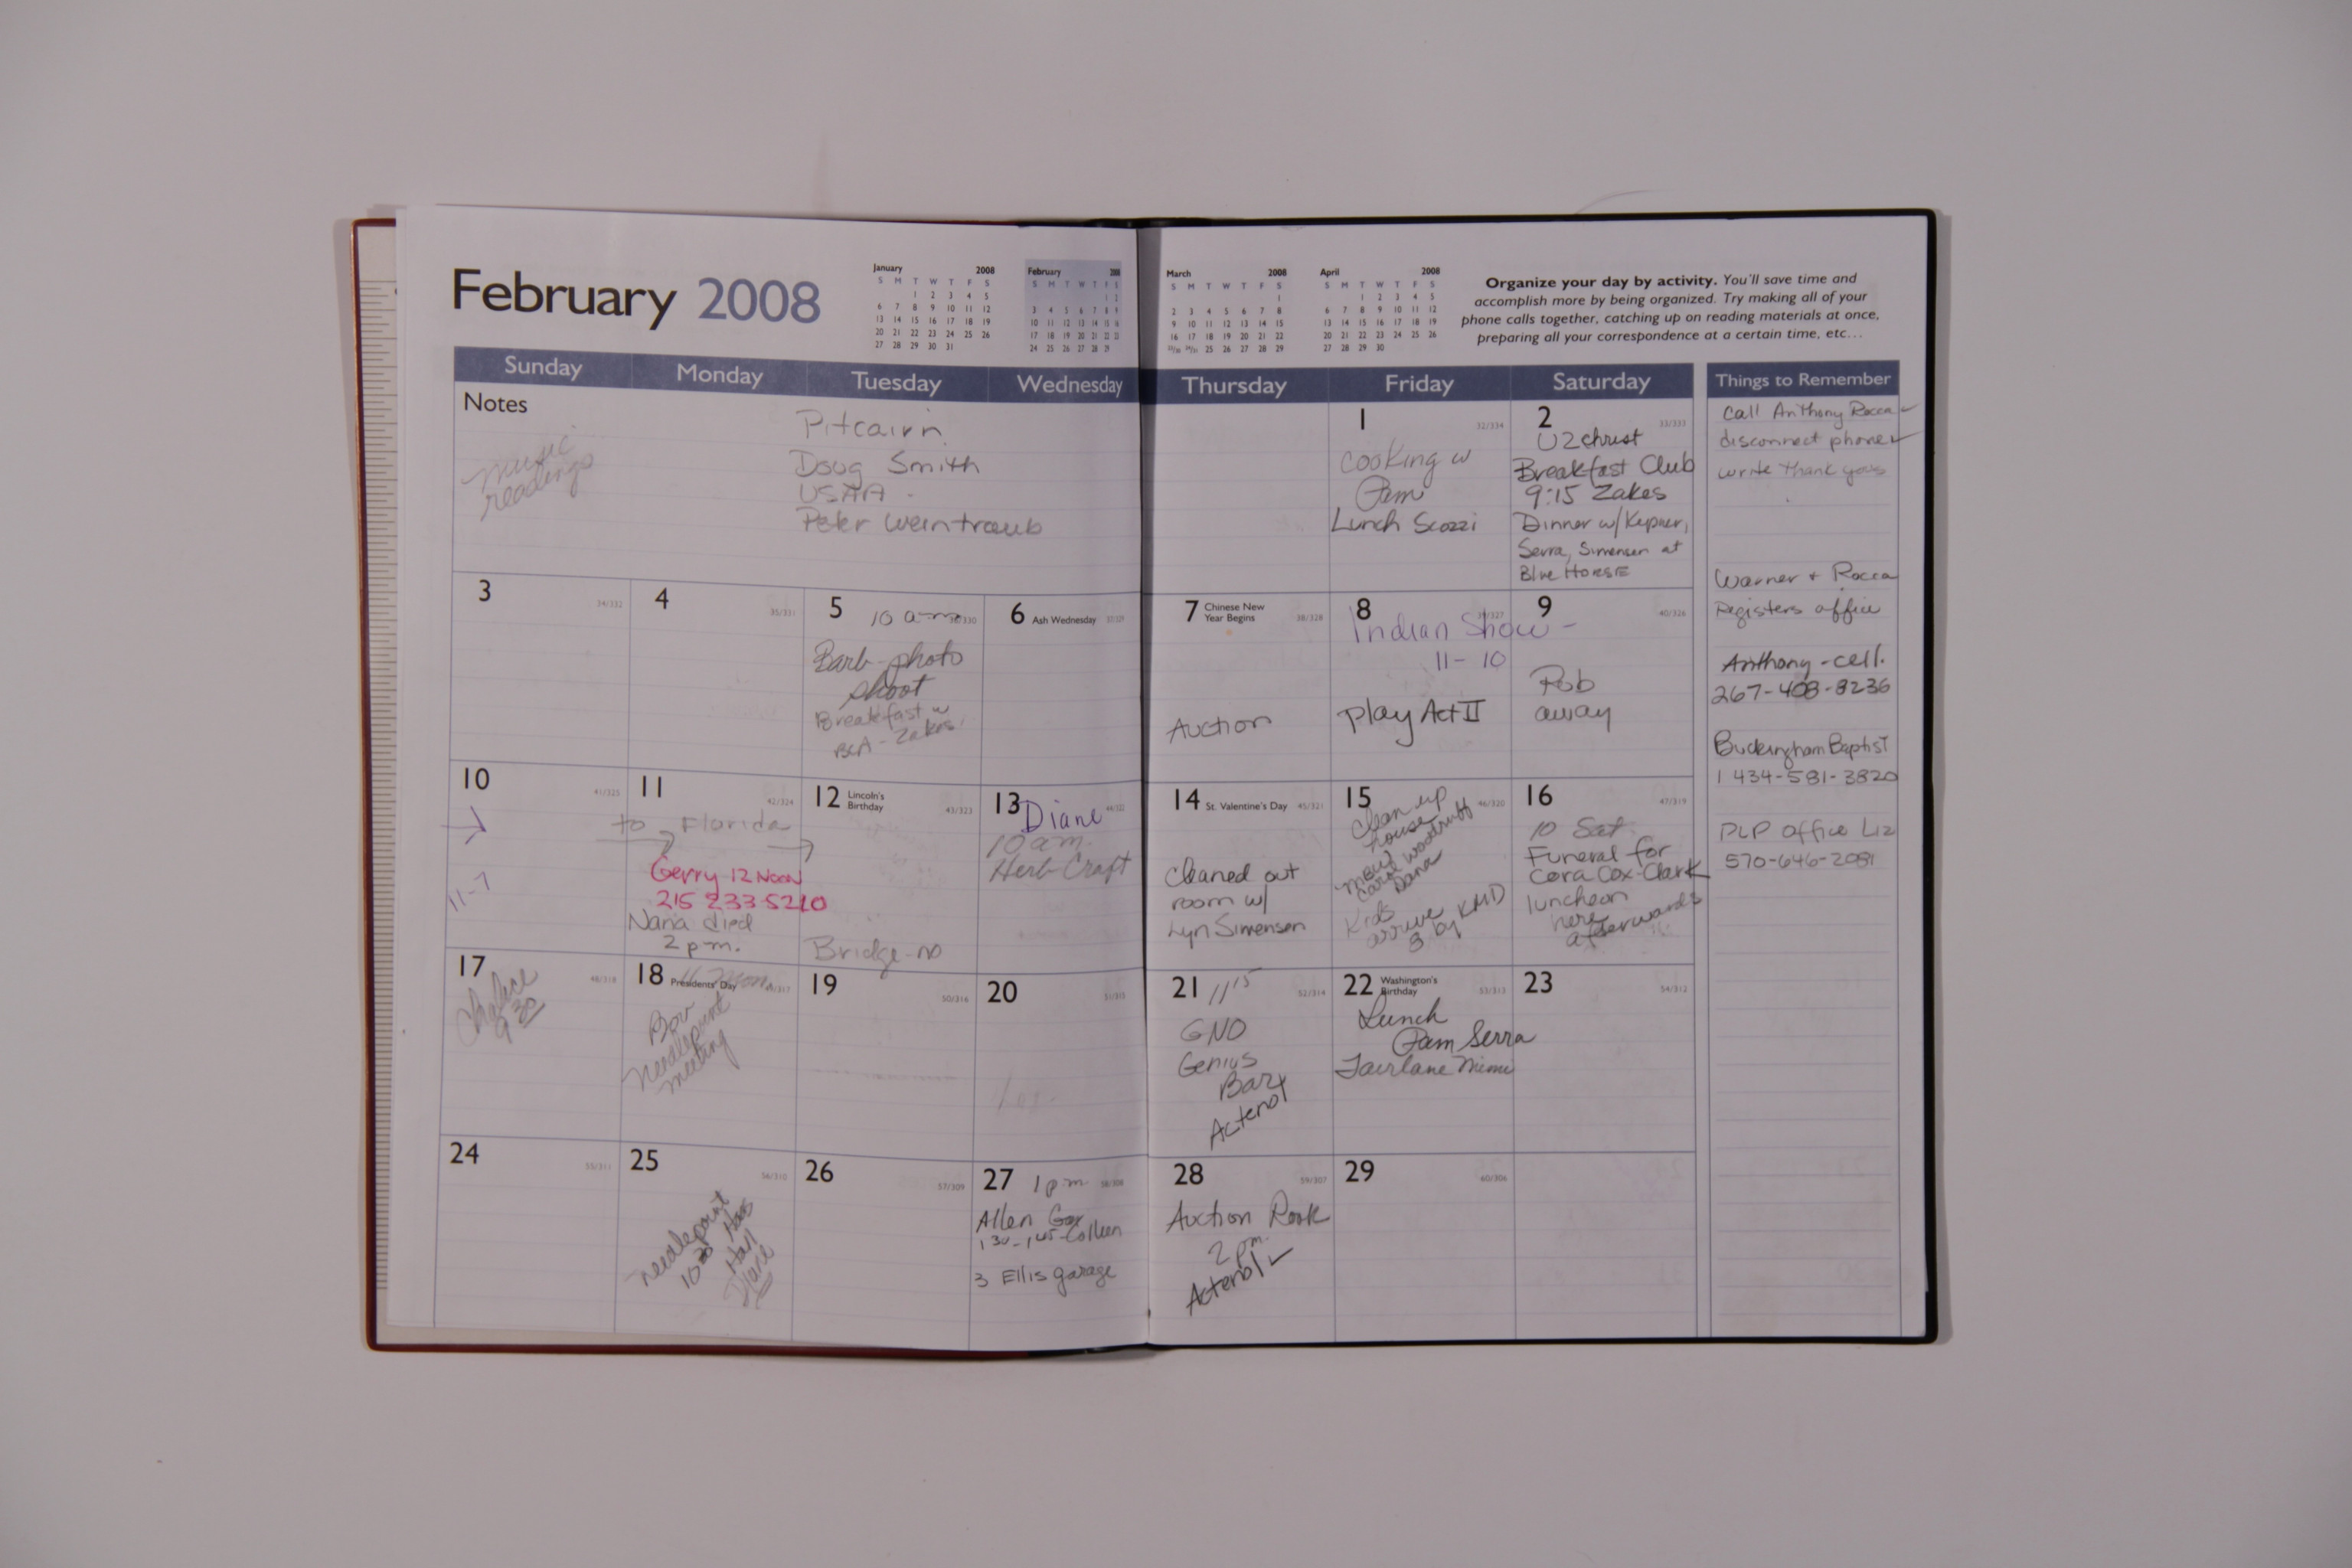 February 2008
January 2008
S M T W T F S
1 2 3 4 5
6 7 8 9 10 11 12
13 14 15 16 17 18 19
20 21 22 23 24 25 26
27 28 29 30 31
February
S M T W T F S
1 2
3 4 5 6 7 8 9
10 11 12 13 14 15 16
17 18 19 20 21 22 23
24 25 26 27 28 29
March 2008
S M T W T F S
1
2 3 4 5 6 7 8
9 10 11 12 13 14 15
16 17 18 19 20 21 22
25 26 27 28 29
April 2008
S M T W T F S
1 2 3 4 5
6 7 8 9 10 11 12
13 14 15 16 17 18 19
20 21 22 23 24 25 26
27 28 29 30
Organize your day by activity. You'll save time and
accomplish more by being organized. Try making all of your
phone calls together, catching up on reading materials at once,
preparing all your correspondence at a certain time, etc...
Sunday Monday Tuesday Wednesday Thursday Friday Saturday Things to Remember
Notes
music
readings
Pitcairn
Doug Smith
USAA
Peter Weintraub
1 32/334
Cooking w
Pam
Lunch Scozzi
2 33/333
U2christ
Breakfast Club
9:15 Zakes
Dinner w/
Serra, Simensen at
Blue Horse
3 34/332
4 35/331
5 10 am
Barb-photo
shoot
Breakfast w
Zakes
6 Ash Wednesday
7 Chinese New
Year Begins 38/328
Auction
8 39/327
Indian Show -
11 - 10
Play Act II
9 40/326
Rob
away
10 41/325
11-7
11 42/324
to Florida
Gerry 12 Noon
215 233-5210
Nana died
2 pm.
12 Lincoln's
Birthday 43/323
Bridge-no
13 Diane
10 am.
Herb Craft
14 St. Valentine's Day 45/321
Cleaned out
room w/
Lyn Simensen
15 46/320
Clean up
house
Carol Woodruff
Dana
Kids
arrive
8 by KMD
16 47/319
10 Sat
Funeral for
Cora Cox-Clark
luncheon
here
afterwards
17 48/318
Chalice
9 30
18 Presidents' Day
Needlepoint
meeting
19 50/316
20 51/315
21 11 15 52/314
GNO
Genius
Bar
Actenol
22 Washington's
Birthday 53/313
Lunch
Pam Serra
Fairlane Mimi
23 54/312
24 55/311
25 56/310
needlepoint
Diane
26 57/309
27 1 pm 58/308
Allen
1 30 - 1 45 - Colleen
3 Ellis garage
28 59/307
Auction
2 pm.
Actenol
29 60/306
Call Anthony Rocca
disconnect phone
write thank yous
Warner + Rocca
Registers office
Anthony - cell.
267-408-8236
Buckingham Baptist
1 434-581-3820
PLP office Liz
570-646-2081